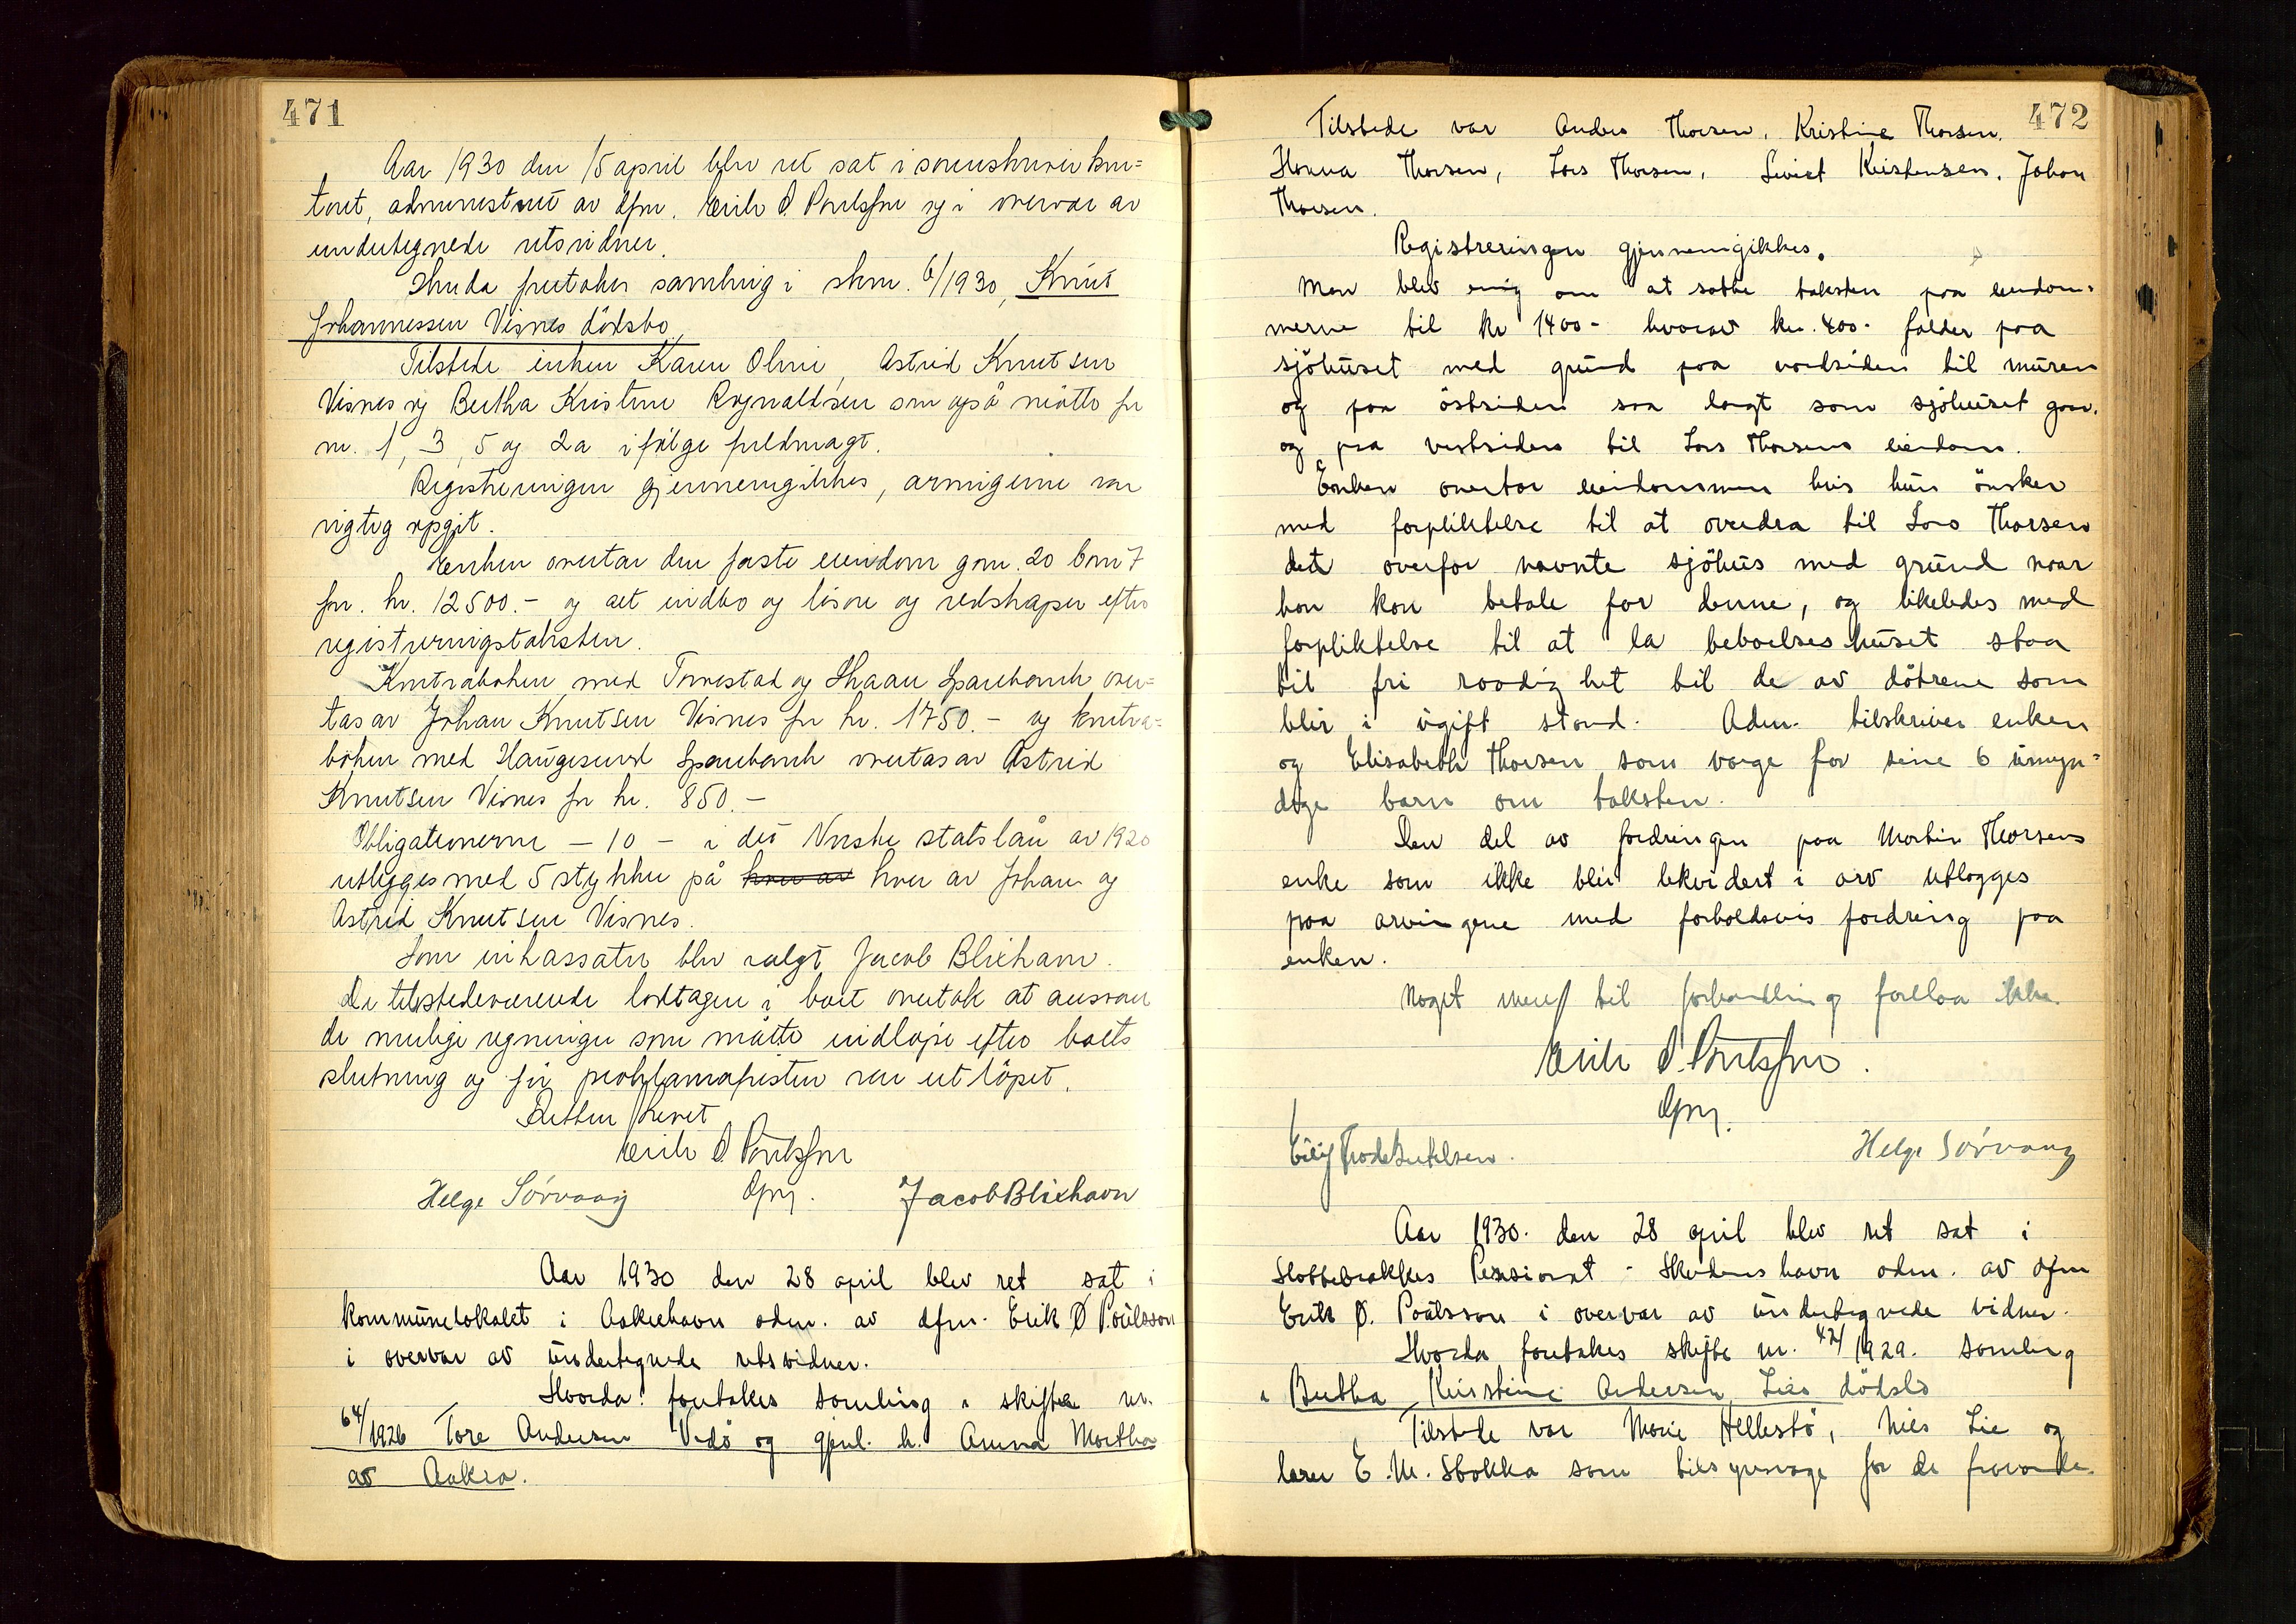 471
Aar 1930 den 15 april blev ret sat i sorenskriverkon=
toret, administrert av dfm. Erik Ø. Poulsson og i overvær av
undertegnede retsvidner.
Hvorda foretokes samling i skm. 6/1930, Knut
Johannessen Visnes dödsbo.
Tilstede enken Karen Oline, Astrid Knutsen
Visnes og Bertha Kristine Rognaldsen som også mötte for
nr. 1, 3, 5 og 2a ifölge fuldmagt.
Registreringen gjennemgikkes, arvingerne var
rigtig opgit.
Enken overtar den faste eiendom gnr. 20 bnr 7
for kr. 12500.- og alt indbo og lösöre og redskaper efter
registreringstaksten.
Kontraboken med Torvestad og Skaare Sparebank over=
tas av Johan Knutsen Visnes for kr. 1750.- og kontra=
boken med Haugesund Sparebank overtas av Astrid
Knutsen Visnes for kr. 850.-
Obligationerne - 10 - i det Norske statslån av 1920
utlegges med 5 stykker på hver av hver av Johan og
Astrid Knutsen Visnes.
Som inkassator blev valgt Jacob Blixhavn.
De tilstedeværende lodtagere i boet overtok at ansvare
de mulige regninger som måtte indlöpe efter boets
slutning og för proklamafristen var utlöpet.
Retten hevet
Erik Ø. Poulsson
Helge Sörvaag dfm. Jacob Blixhavn
Aar 1930 den 28 april blev ret sat i
kommunelokalet i Aakrehavn adm. av dfm. Erik Ø Poulsson
i overvær av undertegnede retsvidner.
Hvorda foretokes samling i skifte nr.
64/1926 Tore Andersen Vedö og gjenl. h. Anna Martha
av Aakra.
472
Tilstede var Andreas Thorsen, Kristine Thorsen.
Hanna Thorsen, Lars Thorsen, Sivert Kristensen, Johan
Thorsen.
Registreringen gjennemgikkes.
Man blev enig om at sætte taksten paa eiendom-
merne til kr 1400- hvorav kr. 400- falder paa
sjöhuset med grund paa nordsiden til muren
og paa östsiden saa langt som sjöhuset gaar.
og paa vestsiden til Lars Thorsens eiendom.
Enken overtar eiendommen hvis hun önsker
med forpliktelse til at overdra til Lars Thorsen
det overfor nævnte sjöhus med grund naar
han kan betale for denne, og likeledes med
forpliktelse til at la beboelseshuset staa
til fri raadighet til de av dötrene som
blir i ugift stand. Adm. tilskriver enken
og Elisabeth Thorsen som værge for sine 6 umyn=
dige barn om taksten.
Den del av fordringen paa Martin Thorsens
enke som ikke blir likvidert i arv utlægges
paa arvingene med forholdsvis fordring paa
enken.
Noget mere til forhandling forelaa ikke.
Erik Ø. Poulsson.
dfm.
Helge Sörvaag
Aar 1930. den 28 april blev ret sat i
Slottebrakkes Pensionat - Skudeneshavn adm. av dfm
Erik Ø. Poulsson i overvær av undertegnede vidner.
Hvorda foretokes skifte nr. 42/1929. samling
i Bertha Kirstine Andersen Lies dödsbo
Tilstede var Marie Hellestö, Nils Lie og
lærer E. M. Stokka som tilsynsværge for de fraværende.